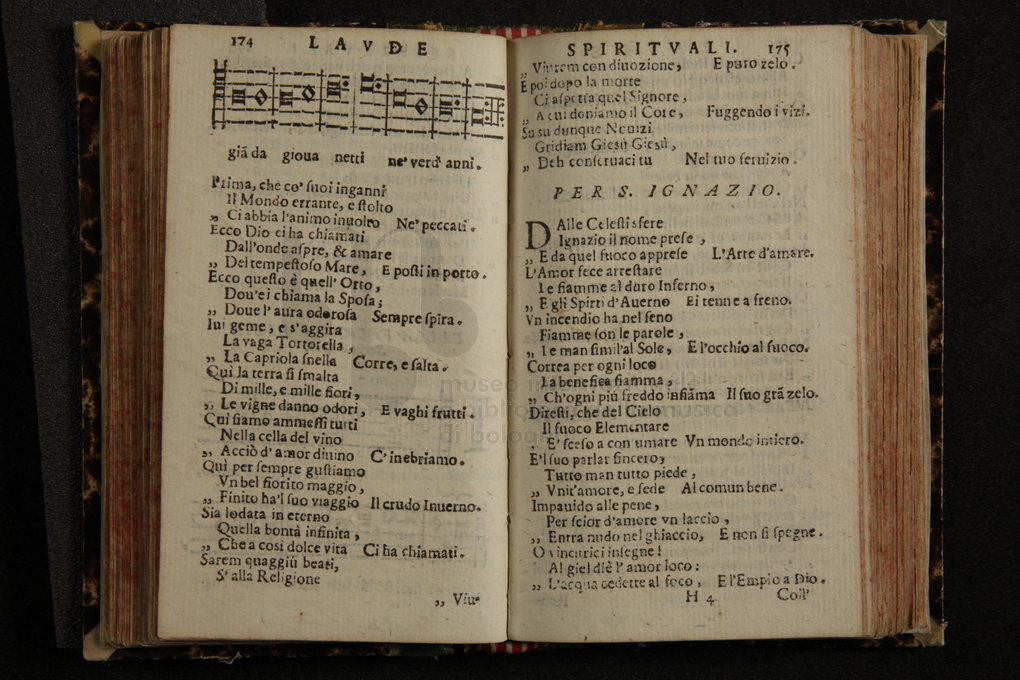 174 LAVDE
giã da gioua netti ne' verd' anni.
Prima, che co' ſuoi inganni
Il Mondo errante, e ſtolto
„ Ci abbia l'animo inuolto Ne' peccati.
Ecco Dio ci ha chiamati
Dall'onde aſpre, & amare
„ Del tempeſtoſo Mare, E poſti in porto.
Ecco queſto è quell' Orto,
Dou'ei chiama la Spoſa;
„ Doue l'aura odoroſa Sempre ſpira.
Iui geme, e s'aggira
La vaga Tortorella,
„ La Capriola ſnella Corre, e ſalta.
Qui la terra ſi ſmalta
Di mille, e mille fiori,
„ Le vigne danno odori, E vaghi frutti.
Qui ſiamo ammeſſi tutti
Nella cella del vino
„ Acciò d'amor diuino C'inebriamo.
Qui per ſempre guſtiamo
Vn bel fiorito maggio,
„ Finito ha'l ſuo viaggio Il crudo Inuerno.
Sia lodata in eterno
Quella bontà infinita,
„ Che a cosi dolce vita Ci ha chiamati.
Sarem quaggiù beati,
S'alla Religione
„ Viu-
SPIRITVALI. 175
„ Viurem con diuozione, E puro zelo.
E poi dopo la morte
Ci aſpetta quel Signore,
„ A cui doniamo il Core, Fuggendo i vizi.
Su su dunque Nouizi
Gridiam Giesù Giesù,
„ Deh conſeruaci tu Nel tuo ſeruizio.
PER S. IGNAZIO.
DAlle Celeſti sfere
Ignazio il nome preſe,
„ E da quel fuoco appreſe L'Arte d'amare.
L'Amor fece arreſtare
Le fiamme al duro Inferno,
„ E gli Spirti d'Auerno Ei tenne a freno.
Vn incendio ha nel ſeno
Fiamme ſon le parole,
„ Le man ſimil'al Sole, E l'occhio al fuoco.
Correa per ogni loco
La benefica fiamma,
„ Ch'ogni più freddo infiãma Il ſuo grã zelo.
Direſti, che del Cielo
Il fuoco Elementare
E' ſceſo a conſumare Vn mondo intiero.
E'l ſuo parlar ſincero,
Tutto man tutto piede,
„ Vnit'amore, e fede Al comun bene.
Impauido alle pene,
Per ſcior d'amore vn laccio,
„ Entra nudo nel ghiaccio, E non ſi ſpegne.
O vincitrici inſegne!
Al giel diè l'amor loco:
„ L'acqua cedette al foco, E l'Empio a Dio.
H 4 Coll'